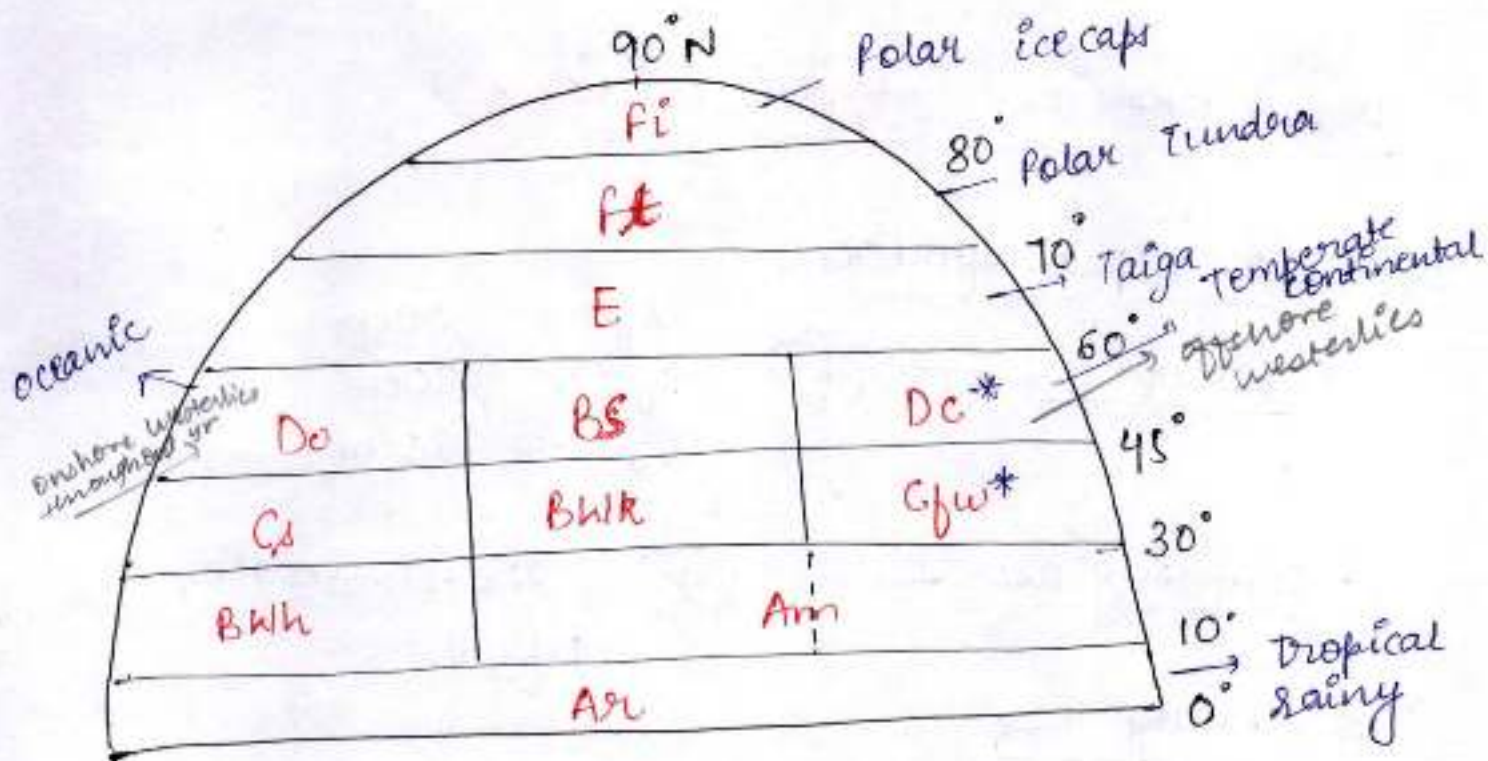 90° N
Polar ice caps
Fi
80°
Polar Tundra
Ft
70°
Taiga
Temperate
continental
E
60°
offshore
westerlies
oceanic
onshore westerlies
throughout yr
Do
BS
DC*
45°
Cs
BWk
Cfw*
30°
BWh
Am
10°
Tropical
rainy
Ar
0°